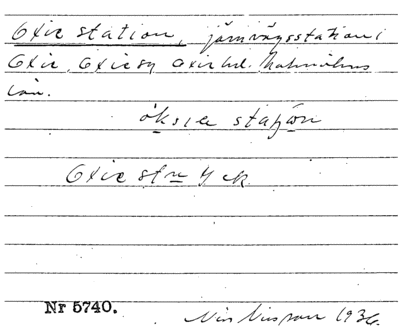 Oxie station, järnvägsstation i
Oxie, Oxie sn Oxie hd. Malmöhus
län.
öksıe staʃɷn
Oxie st:n 4 ek.
Nr 5740.
Nils Nilsson 1936.